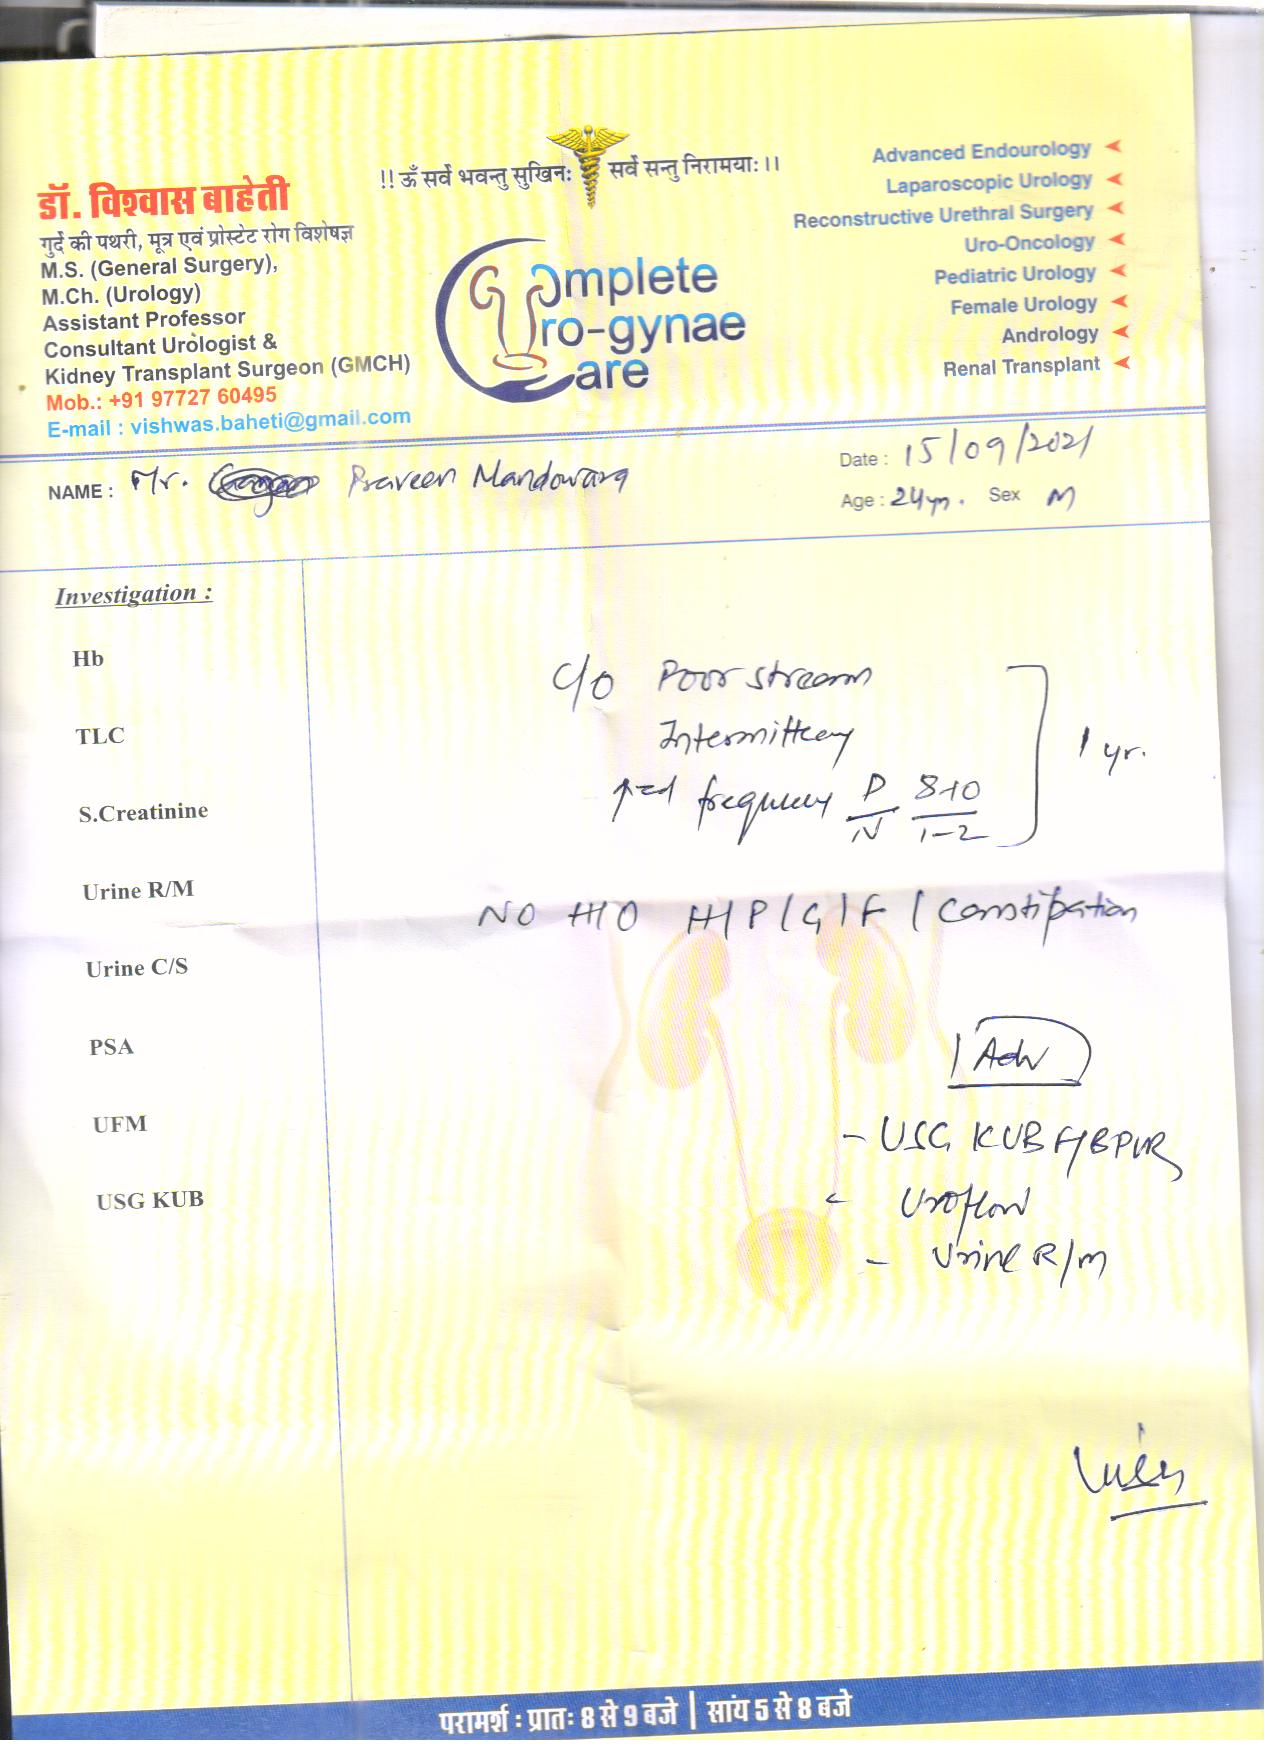 !! ॐ सर्वे भवन्तु सुखिनः सर्वे सन्तु निरामयाः ।।
डॉ. विश्वास बाहेती
गुर्दे की पथरी, मूत्र एवं प्रोस्टेट रोग विशेषज्ञ
M.S. (General Surgery),
M.Ch. (Urology)
Assistant Professor
Consultant Urologist &
Kidney Transplant Surgeon (GMCH)
Mob.: +91 97727 60495
E-mail : vishwas.baheti@gmail.com
Complete
Uro-gynae
Care
Advanced Endourology
Laparoscopic Urology
Reconstructive Urethral Surgery
Uro-Oncology
Pediatric Urology
Female Urology
Andrology
Renal Transplant
NAME : Mr. Praveen Mandowara
Date : 15/09/2021
Age : 24yr. Sex M
Investigation :
Hb
TLC
S.Creatinine
Urine R/M
Urine C/S
PSA
UFM
USG KUB
C/O Poor stream
Intermittency
↑ed frequency D/N 8-10/1-2
1 yr.
NO H/O H/P/G/F/Constipation
Adv
- USG KUB F/B PVR
- Uroflow
- Urine R/M
परामर्श : प्रातः 8 से 9 बजे | सांय 5 से 8 बजे